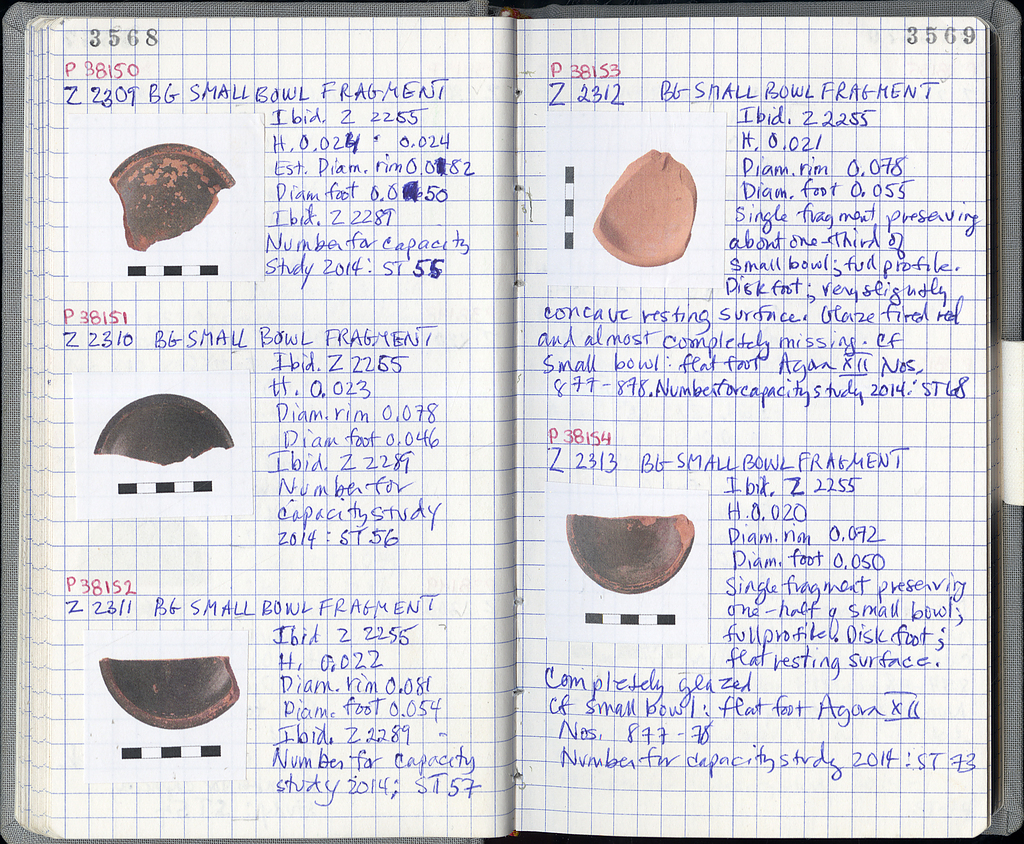 3568
P 38150
Z 2309 BG SMALL BOWL FRAGMENT
Ibid. Z 2255
H. 0.024 0.024
Est. Diam. rim 0.082
Diam foot 0.050
Ibid. Z 2289
Number for capacity
Study 2014: ST 55
P 38151
Z 2310 BG SMALL BOWL FRAGMENT
Ibid. Z 2255
H. 0.023
Diam. rim 0.078
Diam foot 0.046
Ibid. Z 2289
Number for
capacity study
2014: ST 56
P 38152
Z 2311 BG SMALL BOWL FRAGMENT
Ibid Z 2255
H. 0.022
Diam. rim 0.081
Diam. foot 0.054
Ibid. Z 2289
Number for capacity
study 2014; ST 57
3569
P 38153
Z 2312 BG SMALL BOWL FRAGMENT
Ibid. Z 2255
H. 0.021
Diam. rim 0.078
Diam. foot 0.055
Single fragment preserving
about one-third of
small bowl; full profile.
Disk foot; very slightly
concave resting surface. Glaze fired red
and almost completely missing. Cf
Small bowl: flat foot Agora XII Nos.
877-878. Number for capacity study, 2014: ST 68
P 38154
Z 2313 BG SMALL BOWL FRAGMENT
Ibid. Z 2255
H. 0.020
Diam. rim 0.072
Diam. foot 0.050
Single fragment preserving
one-half of small bowl;
full profile. Disk foot;
flat resting surface.
Completely glazed
Cf small bowl: flat foot Agora XII
Nos. 877-78
Number for capacity study 2014: ST 73